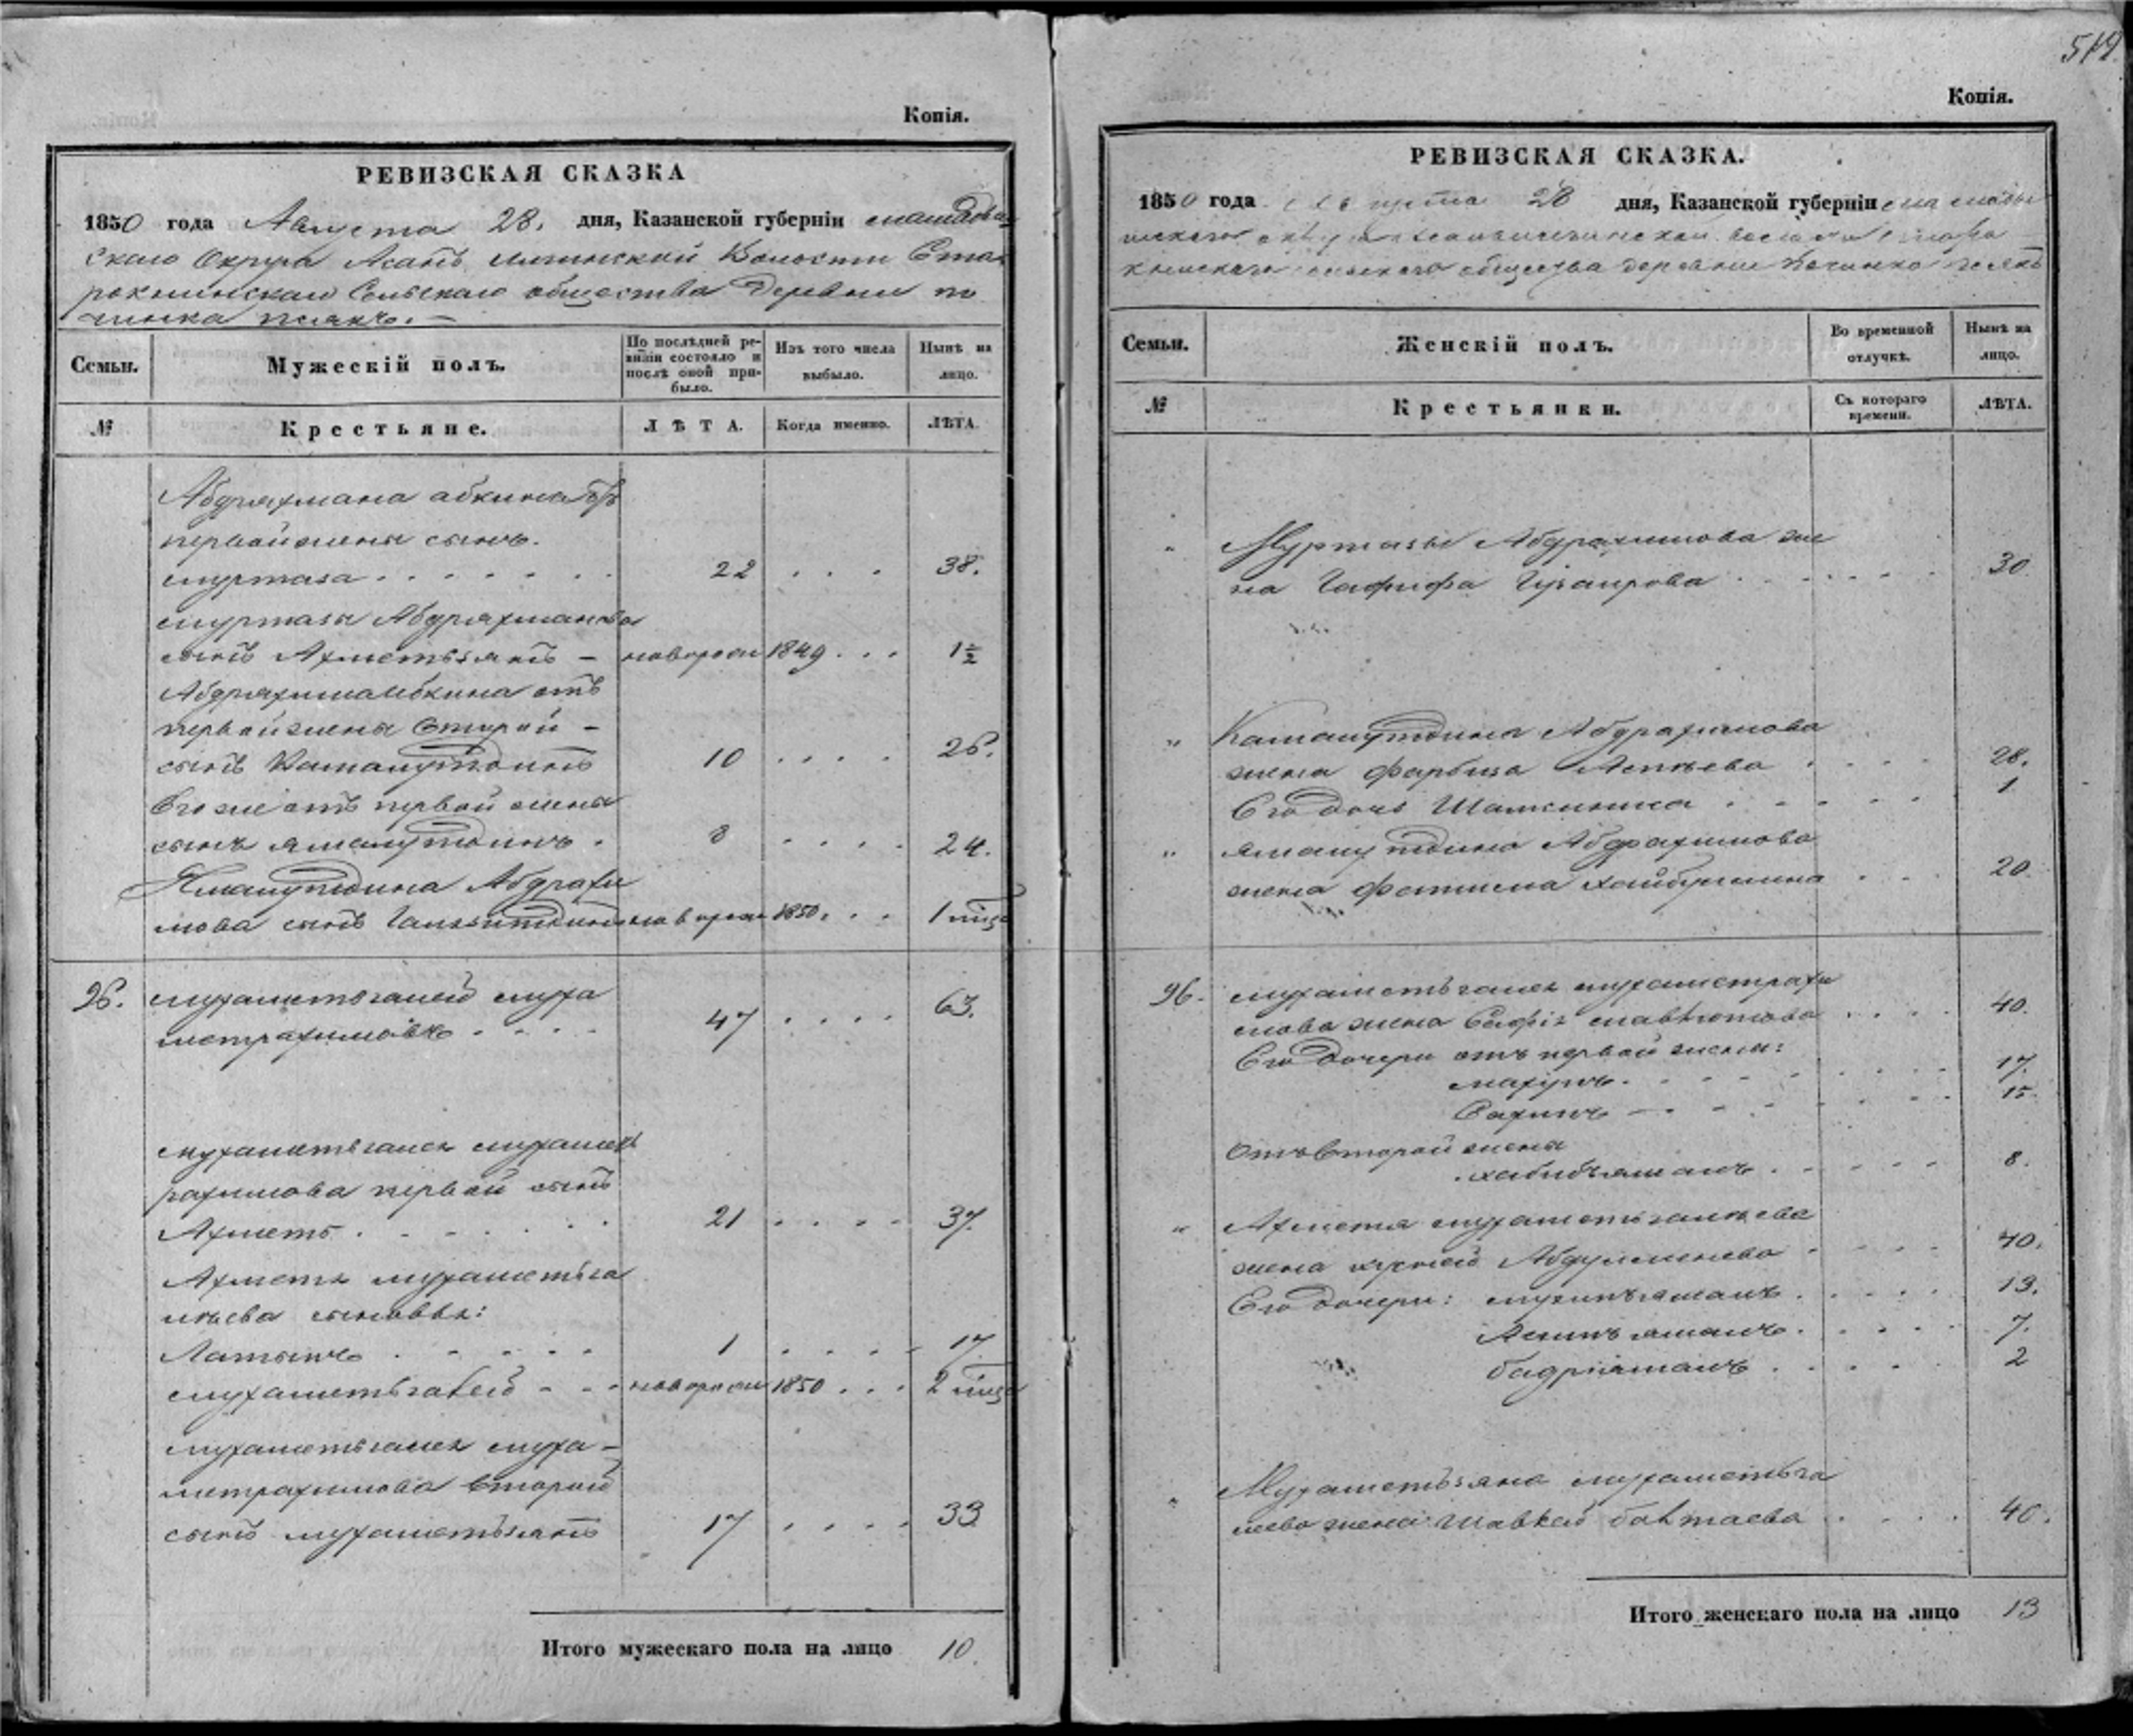 Копія.
РЕВИЗСКАЯ СКАЗКА
1850 года Августа 28. дня, Казанской губерніи мамадыш
скаго Округа Асанъ Илгинской Волости Ста
роклинскаго Сельскаго общества Деревни по
чинка
Семьи. Мужескій полъ. По послѣдней ре-визіи состояло и послѣ оной при-было. Изъ того числа выбыло. Нынѣ на лицо.
№ Крестьяне. ЛѢТА. Когда именно. ЛѢТА.
Абдряхмана абкина отъ
первой жены сынъ.
муртаза . . . . . . . 22 . . . 38.
муртазы Абдряхманова
сынъ Ахметьзянъ – новорож 1849 . . . 1½
Абдряхмана абкина отъ
первой жены второй –
сынъ Камалутдинъ 10 . . . . 26.
Его же отъ первой жены
сынъ ямалутдинъ . 8 . . . . 24.
Ямалутдина Абдрахи
мова сынъ новорож 1850. . . 1 мѣс
26. мухаметьгалей муха
метрахимовъ . . . . 47 . . . . 63.
мухаметьгалея мухамет
рахимова первой сынъ
Ахметъ . . . . . . 21 . . . . 37.
Ахметя мухаметьга
лѣева сыновья:
Латыпъ . . . . . 1 . . . . 17
мухаметьгалей - - - новорож 1850 . . . 2 мѣс
мухаметьгалея муха –
метрахимова второй
сынъ мухаметьзянъ 17 . . . . 33
Итого мужескаго пола на лицо 10.
519.
Копія.
РЕВИЗСКАЯ СКАЗКА.
1850 года Августа 28 дня, Казанской губерніи мамады
шскаго округа Асанъ Илгинской волости Старо
клинскаго сельскаго общества деревни Починка
Семьи. Женскій полъ. Во временной отлучкѣ. Нынѣ на лицо.
№ Крестьянки. Съ котораго времени. ЛѢТА.
„ Муртазы Абдрахимова же
на Гафифа Губаирова . . . . . . . 30
„ Камалутдина Абдрахимова
жена Фарбиза . . . . 28.
Его дочь . . . . . . 1
„ ямалутдина Абдрахимова
жена Хайбуллина . . . . 20.
26. мухаметьгалея мухаметрахи
мова жена Сафія мавлютова . . . . 40.
Его Дочери отъ первой жены:
махупъ . . . . . . . . 17.
Сахипъ – . . . . . . . 15.
Отъ второй жены
хабибъямалъ . . . . . . 8.
„ Ахметя мухаметьгалѣева
жена Абдулменева . . . . . 40.
Его Дочери: музипъямалъ . . . . . 13.
Асипъямалъ . . . . . 7.
бадріямалъ . . . . . 2
„ Мухаметьзяна мухаметьга
леева жена Шавкай бактаева . . . . 40.
Итого женскаго пола на лицо 13